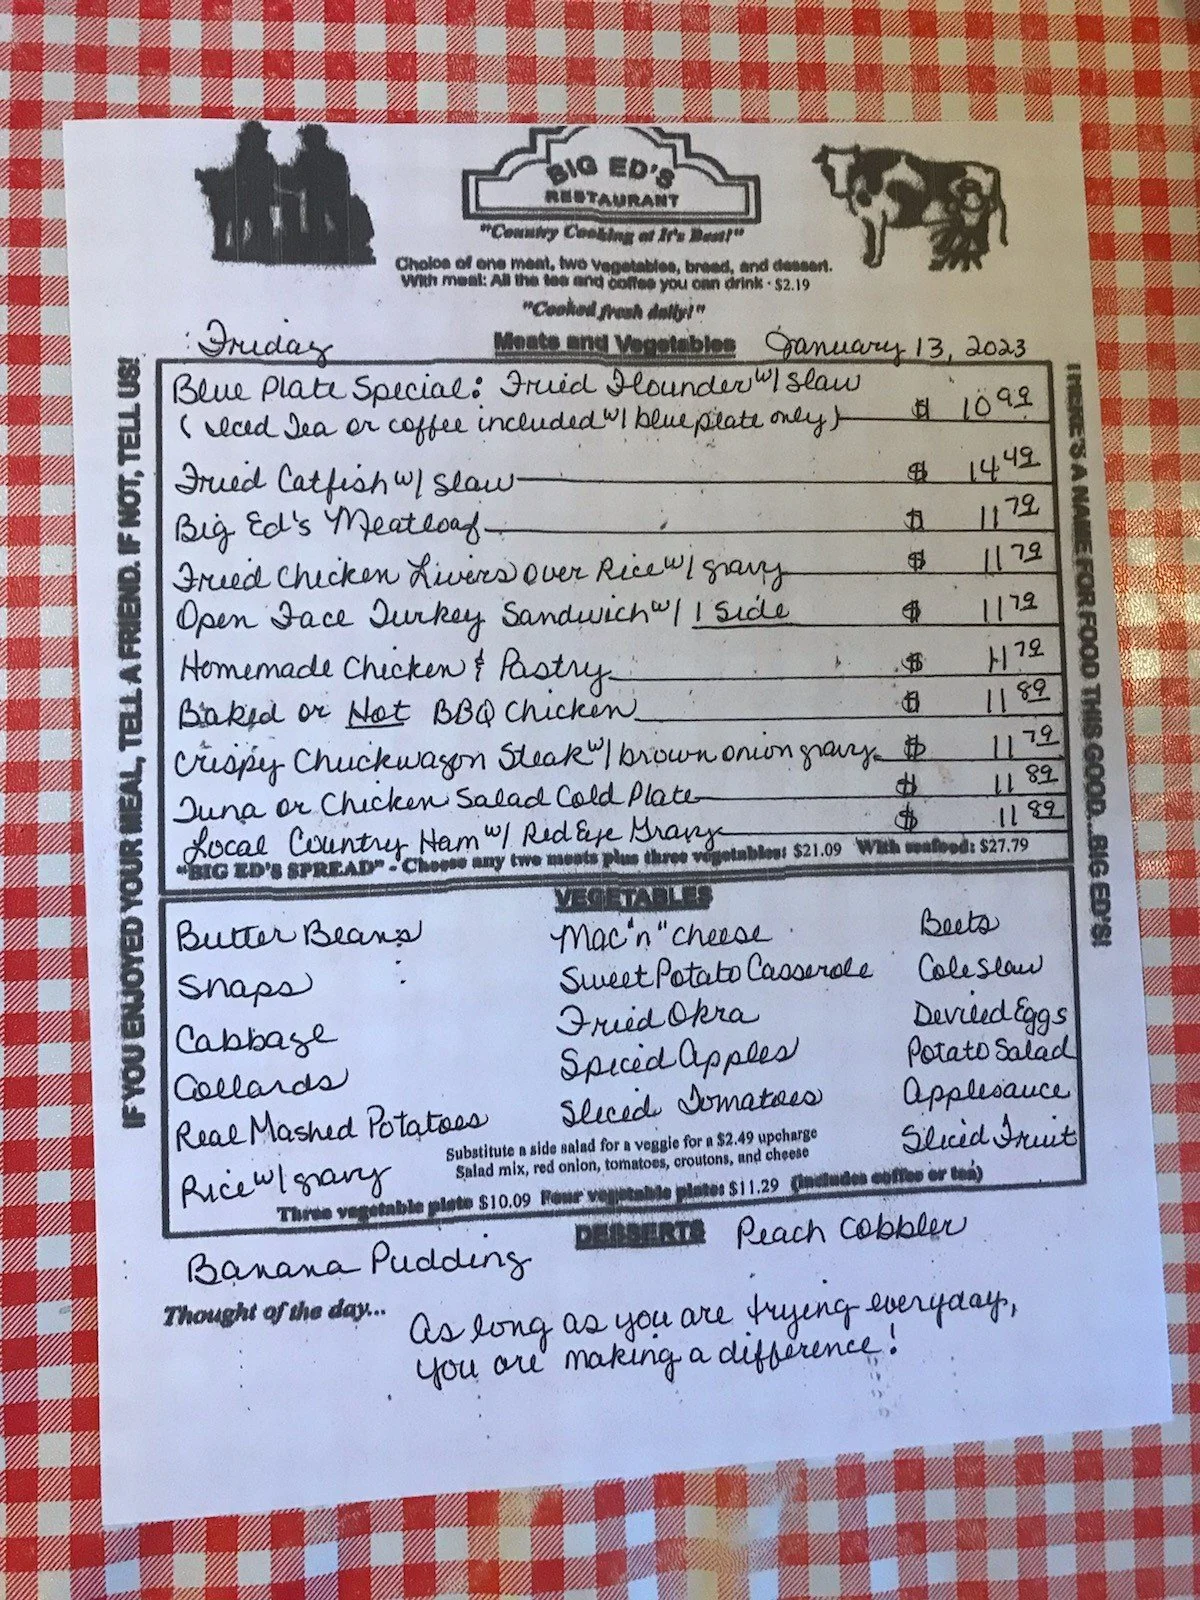 BIG ED'S
RESTAURANT
"Country Cooking at It's Best!"
Choice of one meat, two vegetables, bread, and dessert.
With meal: All the tea and coffee you can drink · $2.19
"Cooked fresh daily!"
Friday Meats and Vegetables January 13, 2023
IF YOU ENJOYED YOUR MEAL, TELL A FRIEND. IF NOT, TELL US!
Blue Plate Special: Fried Flounder w/ Slaw
(Iced Tea or coffee included w/ blue plate only) $ 10 99
Fried Catfish w/ Slaw $ 14 49
Big Ed's Meatloaf $ 11 79
Fried Chicken Livers Over Rice w/ gravy $ 11 79
Open Face Turkey Sandwich w/ 1 Side $ 11 79
Homemade Chicken & Pastry $ 11 79
Baked or Hot BBQ Chicken $ 11 89
Crispy Chuckwagon Steak w/ brown onion gravy $ 11 79
Tuna or Chicken Salad Cold Plate $ 11 89
Local Country Ham w/ Red Eye Gravy $ 11 89
"BIG ED'S SPREAD" - Choose any two meats plus three vegetables: $21.09 With seafood: $27.79
THERE'S A NAME FOR FOOD THIS GOOD...BIG ED'S!
VEGETABLES
Butter Beans Mac "n" Cheese Beets
Snaps Sweet Potato Casserole Cole Slaw
Cabbage Fried Okra Deviled Eggs
Collards Spiced Apples Potato Salad
Real Mashed Potatoes Sliced Tomatoes Applesauce
Rice w/ gravy Sliced Fruit
Substitute a side salad for a veggie for a $2.49 upcharge
Salad mix, red onion, tomatoes, croutons, and cheese
Three vegetable plate $10.09 Four vegetable plate: $11.29 (includes coffee or tea)
DESSERTS
Banana Pudding Peach Cobbler
Thought of the day...
As long as you are trying everyday,
you are making a difference!